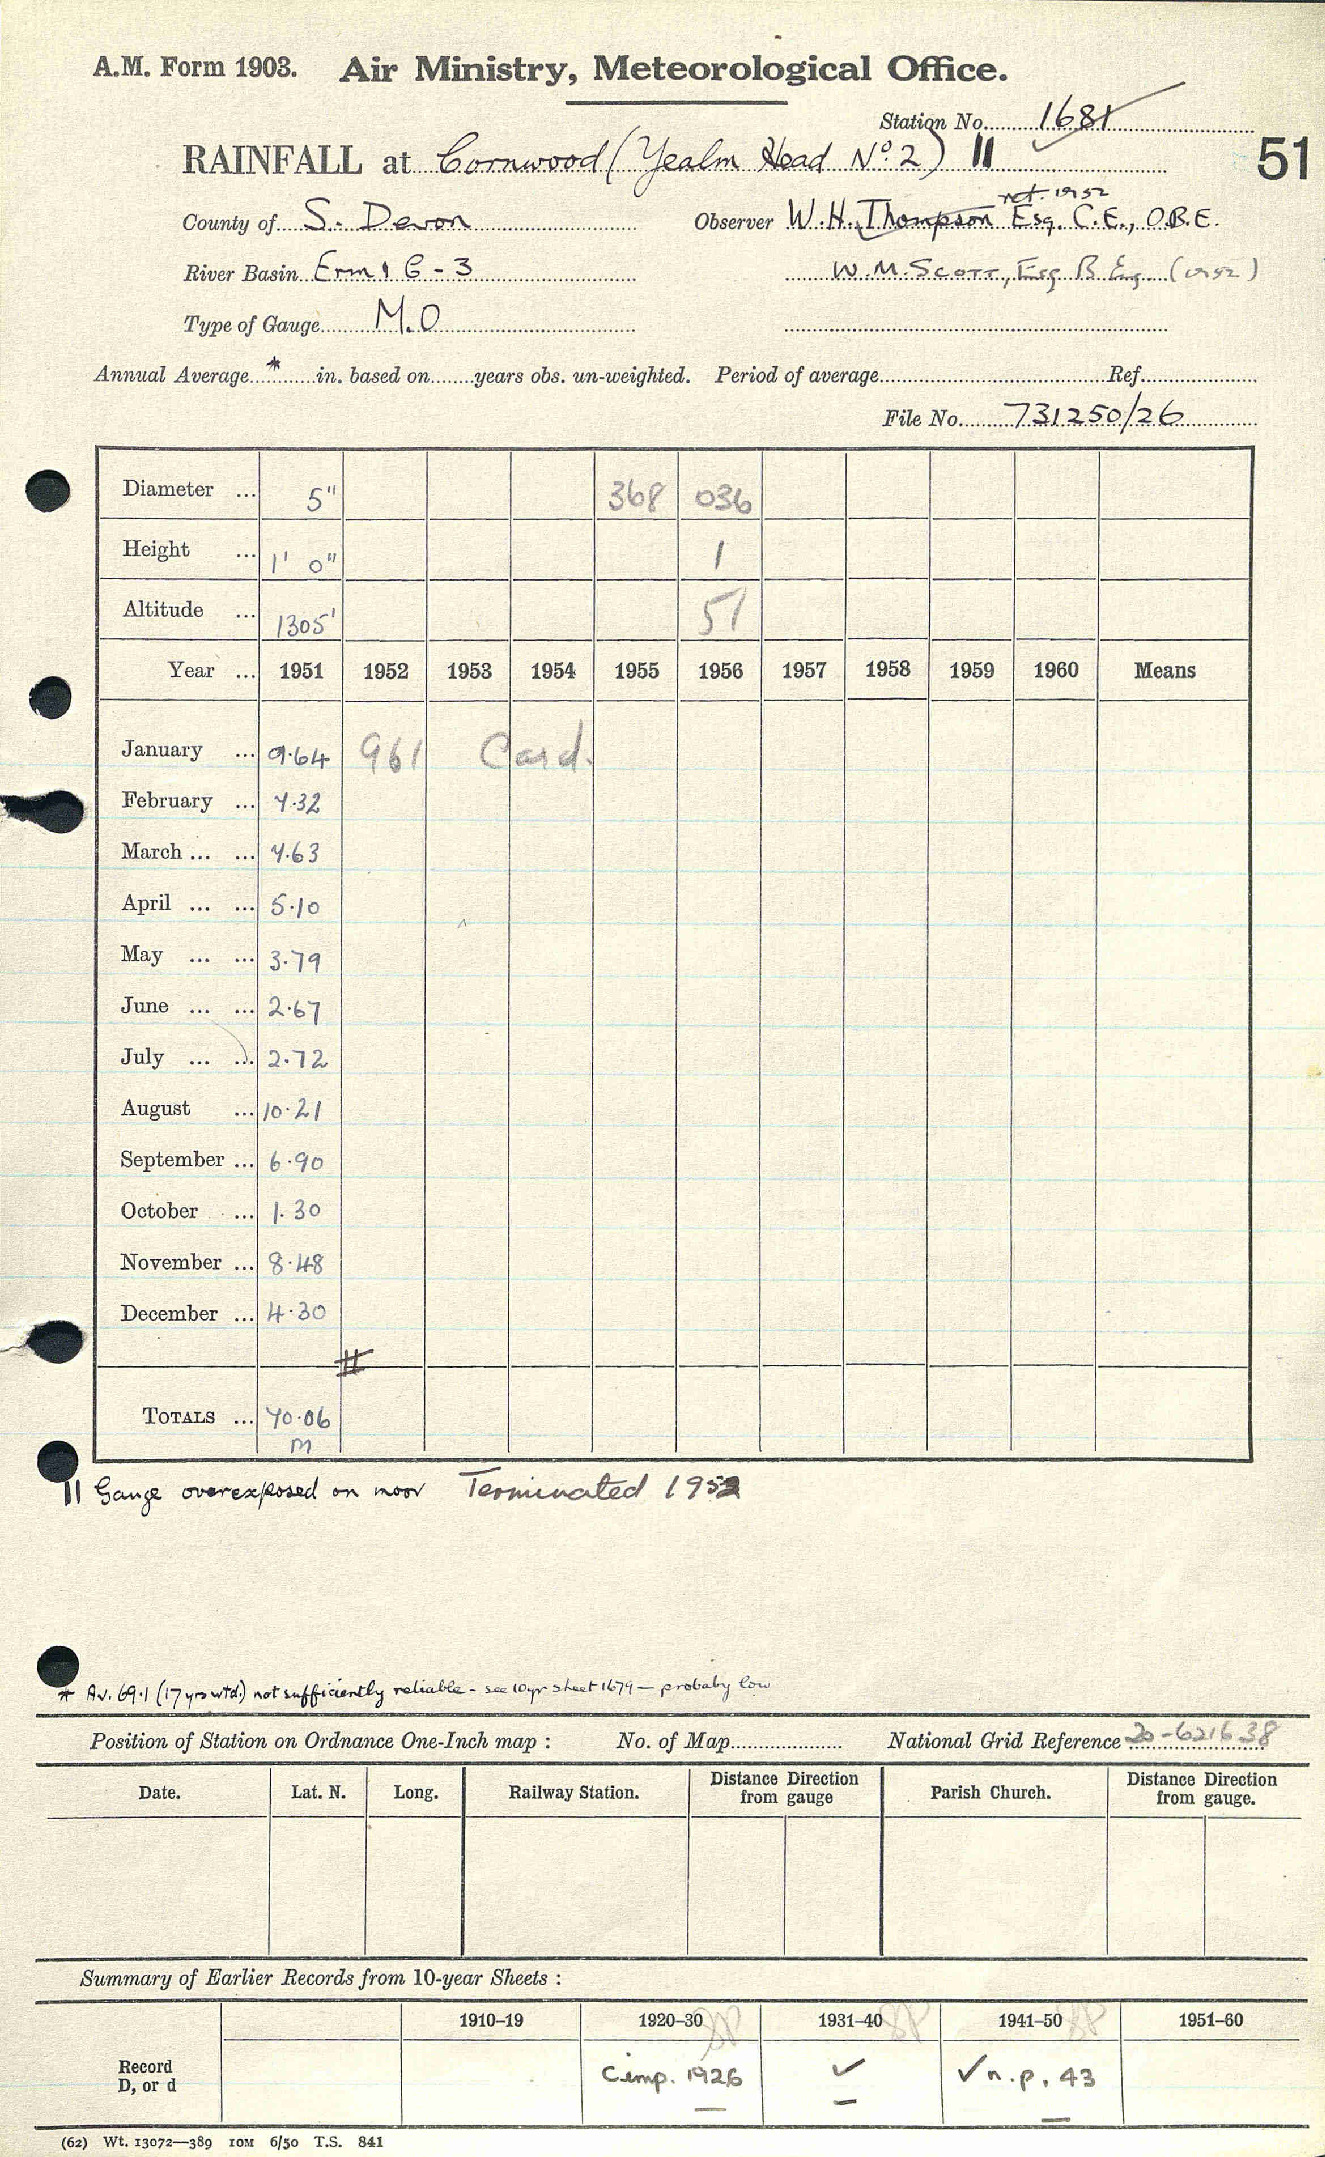 A.M. Form 1903. Air Ministry, Meteorological Office.
Station No. 1681
RAINFALL at Cornwood (Yealm Head No. 2) II 51
ret. 1952
County of S. Devon Observer W.H. Thompson Esq. C.E., O.B.E.
River Basin Erme 6-3 W.M. Scott, Esq. B.Eng. (1952)
Type of Gauge M.O
Annual Average * in. based on years obs. un-weighted. Period of average Ref.
File No. 731250/26
Diameter ... 5" 368 036
Height ... 1' 0" 1
Altitude ... 1305' 51
Year ... 1951 1952 1953 1954 1955 1956 1957 1958 1959 1960 Means
January ... 9.64 961 Card.
February ... 7.32
March ... ... 7.63
April ... ... 5.10
May ... ... 3.79
June ... ... 2.67
July ... ... 2.72
August ... 10.21
September ... 6.90
October ... 1.30
November ... 8.48
December ... 4.30
TOTALS ... 70.06
m
II Gauge overexposed on moor Terminated 1952
* Av. 69.1 (17 yrs wtd.) not sufficiently reliable - see 10yr sheet 1679 - probably low
Position of Station on Ordnance One-Inch map : No. of Map National Grid Reference 20-621638
Date. Lat. N. Long. Railway Station. Distance Direction from gauge Parish Church. Distance Direction from gauge.
Summary of Earlier Records from 10-year Sheets :
1910–19 1920–30 1931–40 1941–50 1951–60
Record D, or d Cimp. 1926 ✓ ✓ n.p. 43
(62) Wt. 13072—389 10M 6/50 T.S. 841